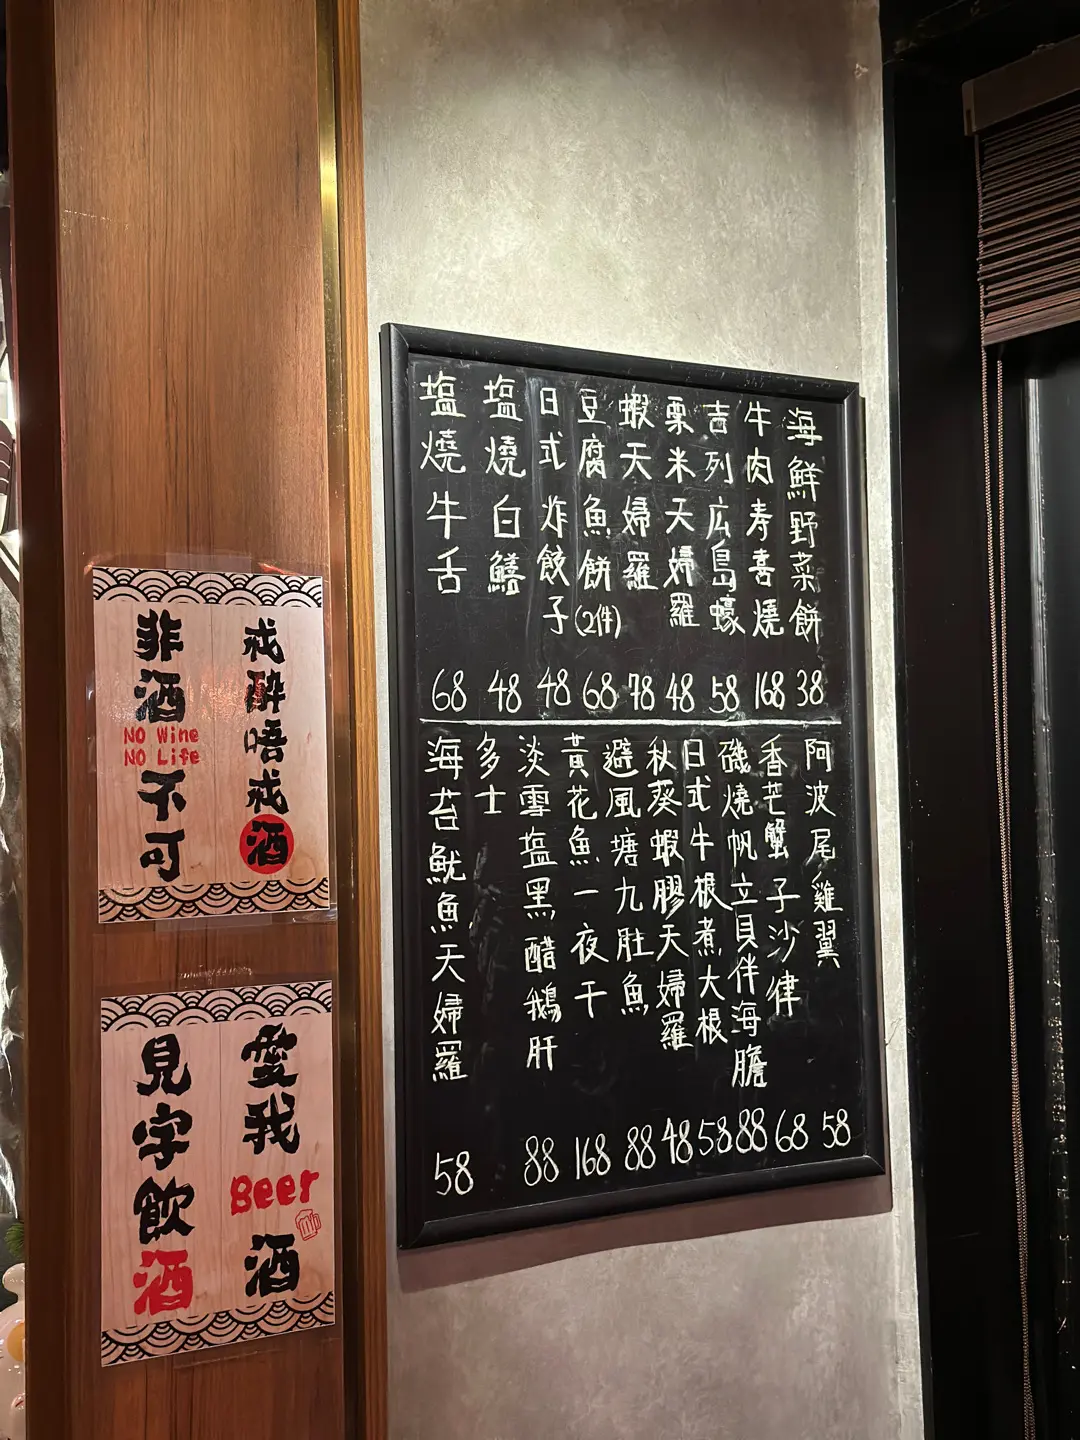 戒酔唔戒酒
非酒
NO Wine
NO Life
不可
愛我Beer酒
見字飲酒
海鮮野菜餅 38
牛肉寿喜燒 168
吉列広島蠔 58
粟米天婦羅 48
蝦天婦羅 78
豆腐魚餅(2件) 68
日式炸餃子 48
塩燒白鱔 48
塩燒牛舌 68
阿波尾雞翼 58
香芒蟹子沙律 68
磯燒帆立貝伴海膽 88
日式牛根煮大根 58
秋葵蝦膠天婦羅 48
避風塘九肚魚 88
黃花魚一夜干 168
淡雪塩黑醋鵝肝 88
多士
海苔魷魚天婦羅 58